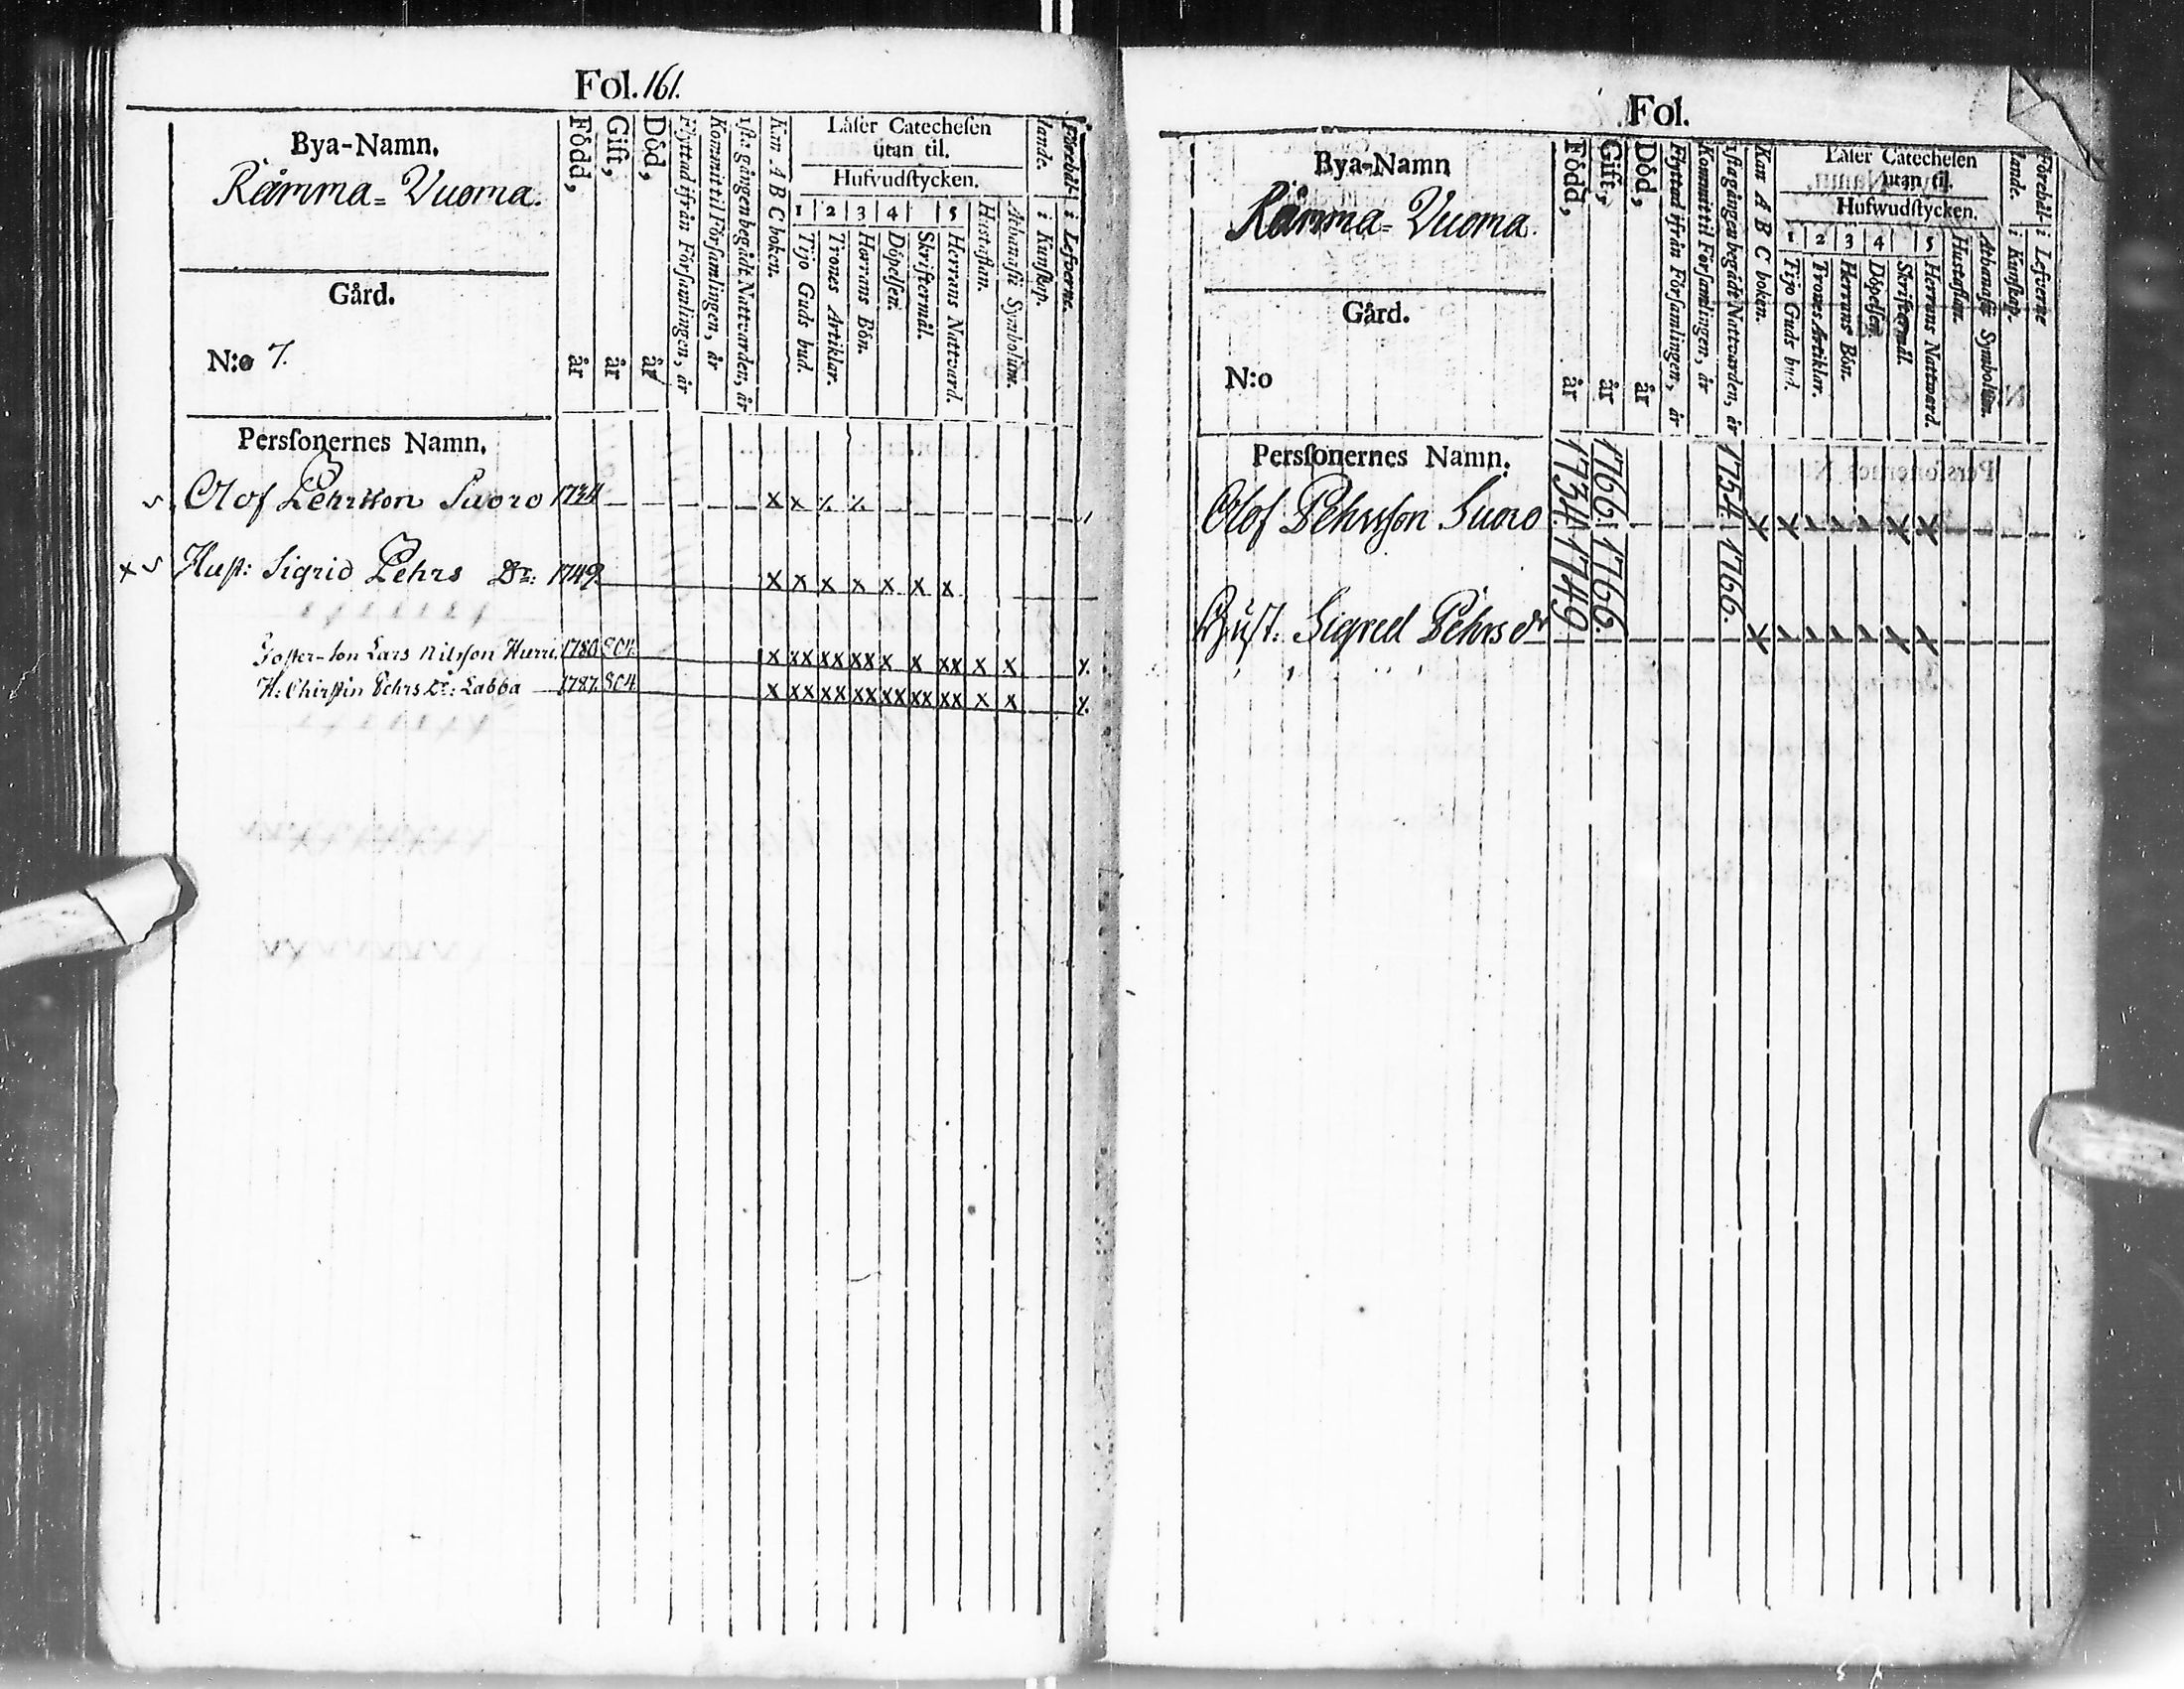 Fol. 161.
Bya-Namn.
Rämma= Vuoma.
Gård.
N:o 7.
Född, år
Gift, år
Död, år
Flyttad ifrån Församlingen, år
Kommit til Församlingen, år
1sta gången begådt Nattvarden, år
Kan A B C boken.
Låser Catechesen
utan til.
Hufvudstycken.
1 2 3 4 5
Tijo Guds bud.
Trones Artiklar.
Herrans Bön.
Döpelsen.
Skriftermål.
Herrans Nattvard.
Hustaflan.
Athanasii Symbolum.
Förehål-
lande.
i Kunskap.
i Lefverne.
Persſonernes Namn.
Olof Pehrsson Suoro 1734 x x ٪ ٪
x Hust: Sigrid Pehrs Dr: 1749 x x x x x x x
Foster-son Lars Nilsson Hurri. 1780. 804. x xx xx xx x x xx x x ٪
H: Chirstin Pehrs Dr: Labba 1787. 804. x xx xx xx xx xx xx x x ٪
Fol.
Bya-Namn
Rämma= Vuoma.
Gård.
N:o
Född, år
Gift, år
Död, år
Flyttad ifrån Församlingen, år
Kommit til Församlingen, år
1sta gången begådt Nattvarden, år
Kan A B C boken.
Låser Catechesen
utan til.
Hufwudstycken.
1 2 3 4 5
Tijo Guds bud.
Trones Artiklar.
Herrans Bön.
Döpelsen.
Skriftermål.
Herrans Nattvard.
Hustaflan.
Athanasii Symbolum.
Förehål-
lande.
i Kunskap.
i Lefverne
Persſonernes Namn.
Olof Pehrsson Suoro 1734. 1766. 1754. x x x x
Hust. Sigred Pehrs dr 1749 1766. 1766. x x x